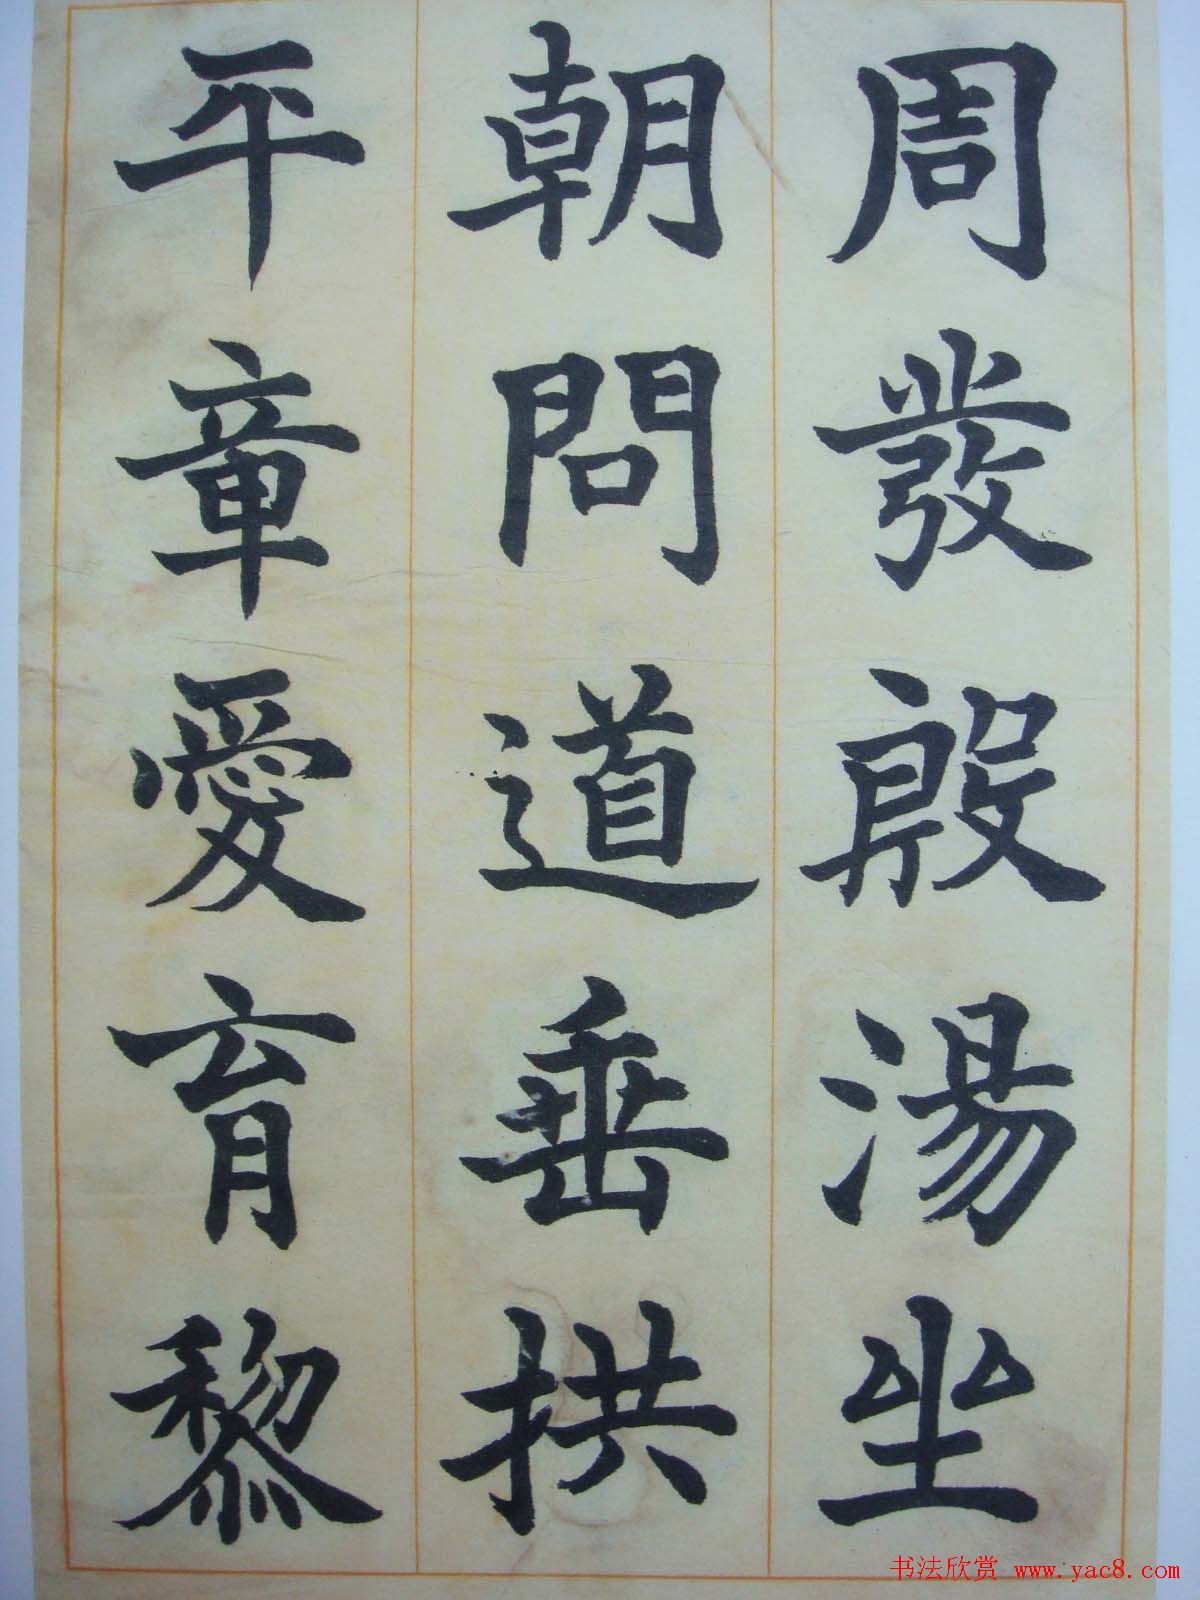 周發殷湯坐
朝問道垂拱
平章愛育黎
书法欣赏 www.yac8.com